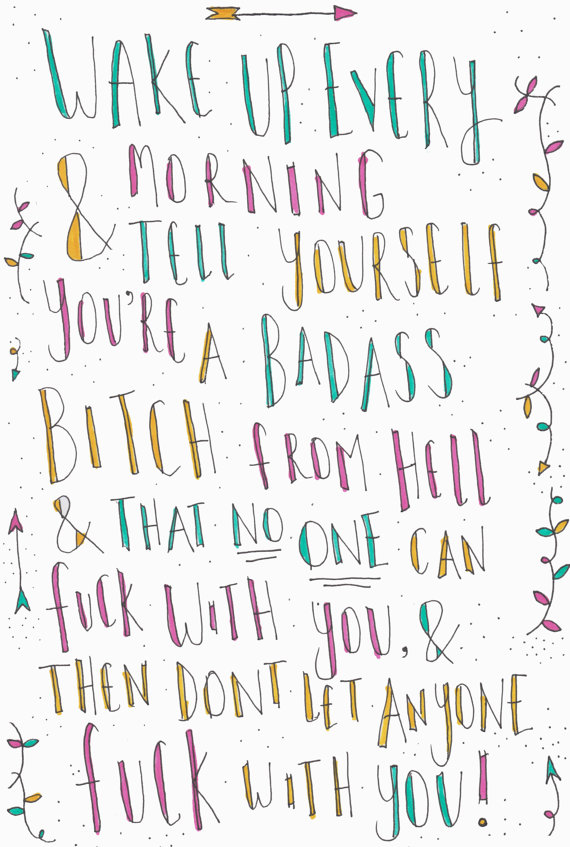 WAKE UP EVERY
& MORNING
TELL YOURSELF
YOU'RE A BADASS
BITCH FROM HELL
& THAT NO ONE CAN
FUCK WITH YOU, &
THEN DONT LET ANYONE
FUCK WITH YOU!